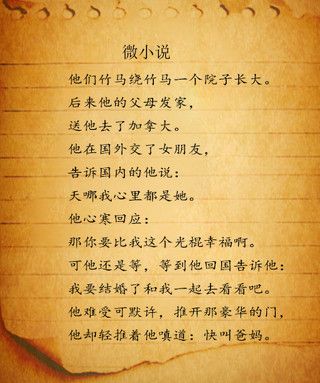 微小说
他们竹马绕竹马一个院子长大。
后来他的父母发家，
送他去了加拿大。
他在国外交了女朋友，
告诉国内的他说：
天哪我心里都是她。
他心寒回应：
那你要比我这个光棍幸福啊。
可他还是等，等到他回国告诉他：
我要结婚了和我一起去看看吧。
他难受可默许，推开那豪华的门，
他却轻推着他嗔道：快叫爸妈。